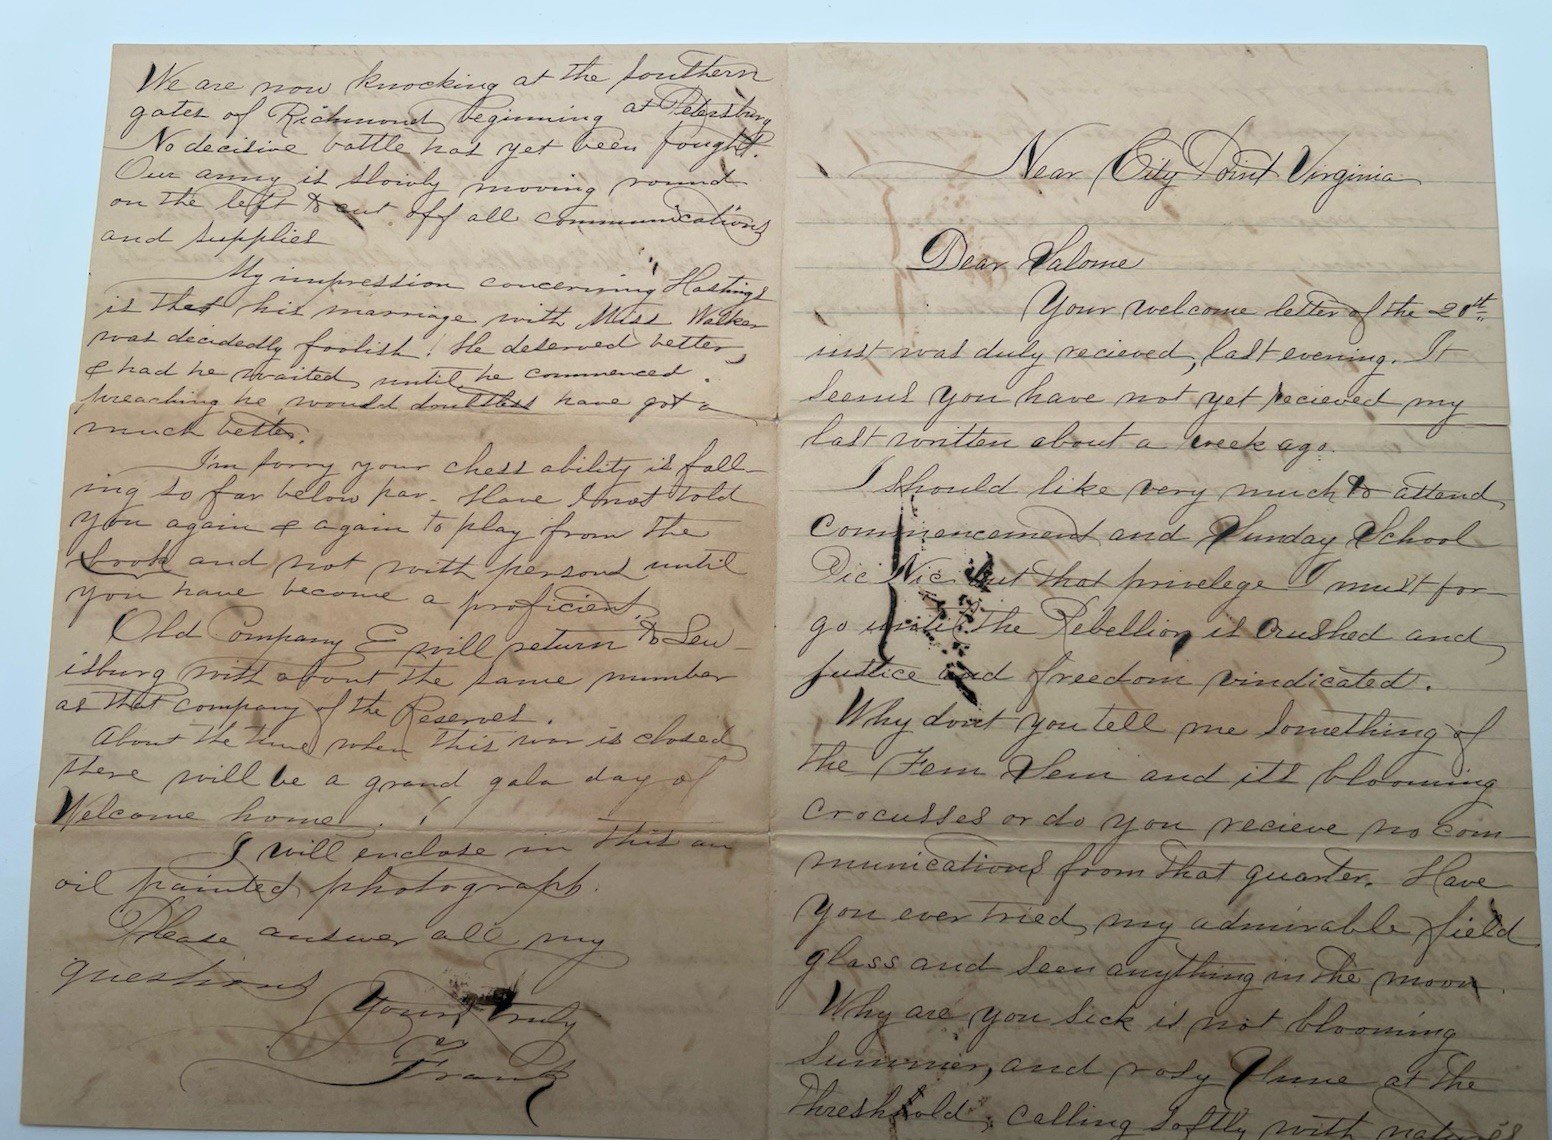 Near City Point Virginia
Dear Salome
Your welcome letter of the 20th
inst was duly recieved, last evening. It
seems you have not yet recieved my
last written about a week ago.
I should like very much to attend
commencement and Sunday School
Pic Nic but that privelege I must for-
go until the Rebellion is Crushed and
justice and freedom vindicated.
Why dont you tell me something of
the Fem Sem and its blooming
crocusses or do you recieve no com-
munications from that quarter. Have
you ever tried my admirable field
glass and seen anything in the moon
Why are you sick is not blooming
summer, and rosy June at the
threshhold, calling softly with
We are now knocking at the southern
gates of Richmond beginning at Petersburg
No decisive battle has yet been fought.
Our army is slowly moving round
on the left to cut off all communications
and supplies
My impression concerning Hastings
is that his marriage with Miss Walker
was decidedly foolish! He deserved better,
& had he waited until he commenced
preaching he would doubtless have got a
much better.
I'm sorry your chess ability is fall-
ing so far below par. Have I not told
you again & again to play from the
book and not with persons until
you have become a proficient.
Old Company E will return to Lew-
isburg with about the same number
as that company of the Reserves.
About the time when this war is closed
there will be a grand gala day of
Welcome home . . !
I will enclose in this an
oil painted photograph.
Please answer all my
questions
Yours Truly
Frank